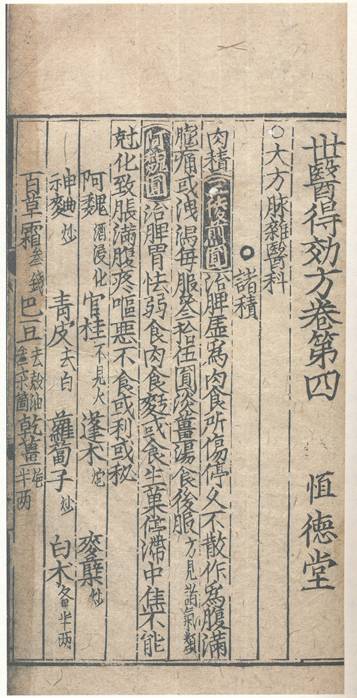 世醫得効方卷第四 恒德堂
大方脉雜醫科
諸積
肉積 三稜煎圓 治脾虚爲肉食所傷停久不散作爲腹滿
膨痛或洩瀉每服叁拾圓淡薑湯食後服 方見諸氣類
阿魏圓 治脾胃怯弱食肉食麪或食生菓停滯中焦不能
尅化致脹滿腹疼嘔惡不食或利或秘
阿魏 酒浸化 官桂 不見火 蓬朮 炮 麥蘖 炒
神麯 炒 青皮 去白 蘿蔔子 炒 白朮 各半兩
百草霜 叁錢 巴豆 去殼油 箇 乾薑 炮 半兩